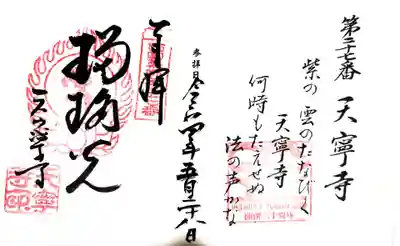 第二十七番 天寧寺
紫の雲のたなびく
天寧寺
何時もたえせぬ
法の声かな
参拝日令和四年五月二十八日
奉拝
瑠璃光
天寧寺